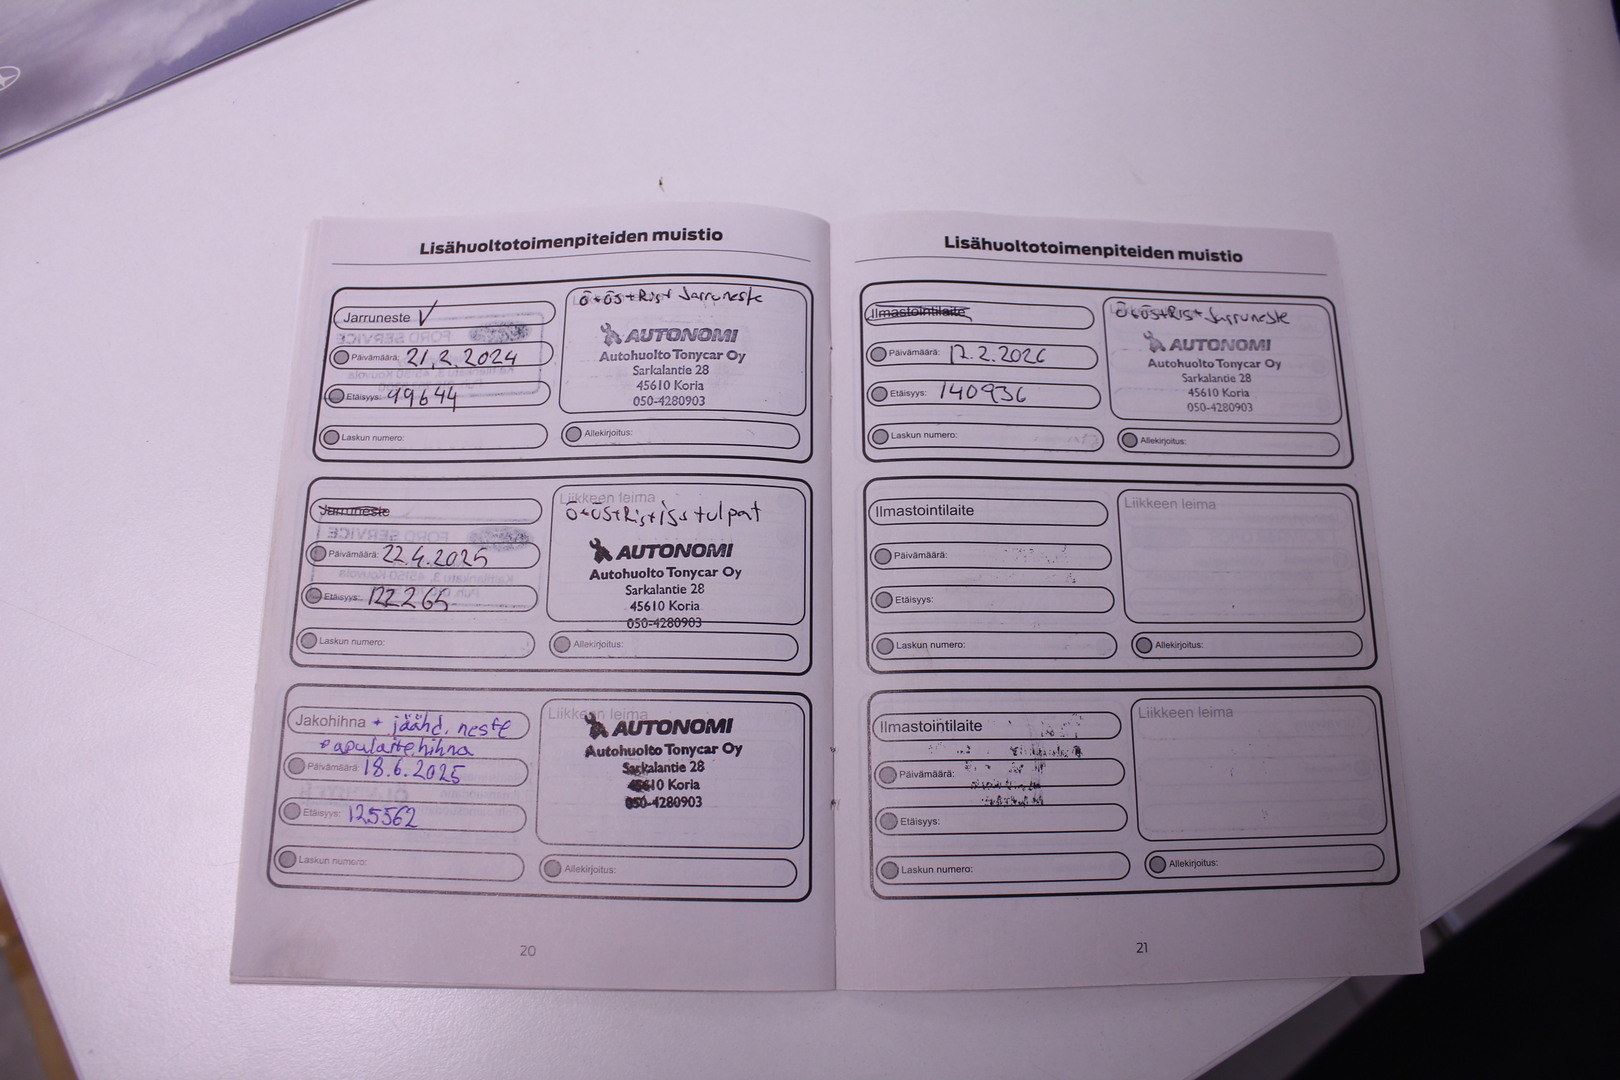 Lisähuoltotoimenpiteiden muistio
Jarruneste ✓
Päivämäärä: 21.2.2024
Etäisyys: 99644
Laskun numero:
Ö+ÖS+Ris+ Jarruneste
AUTONOMI
Autohuolto Tonycar Oy
Sarkalantie 28
45610 Koria
050-4280903
Allekirjoitus:
Jarruneste
Päivämäärä: 22.4.2025
Etäisyys: 122265
Laskun numero:
Liikkeen leima
Ö+ÖS+Ris+ tulpat
AUTONOMI
Autohuolto Tonycar Oy
Sarkalantie 28
45610 Koria
050-4280903
Allekirjoitus:
Jakohihna + jäähd. neste
+ apulaitehihna
Päivämäärä: 18.6.2025
Etäisyys: 125562
Laskun numero:
Liikkeen leima
AUTONOMI
Autohuolto Tonycar Oy
Sarkalantie 28
45610 Koria
050-4280903
Allekirjoitus:
20
Lisähuoltotoimenpiteiden muistio
Ilmastointilaite
Päivämäärä: 12.2.2026
Etäisyys: 140936
Laskun numero:
Ö+ÖS+Ris+ Jarruneste
AUTONOMI
Autohuolto Tonycar Oy
Sarkalantie 28
45610 Koria
050-4280903
Allekirjoitus:
Ilmastointilaite
Päivämäärä:
Etäisyys:
Laskun numero:
Liikkeen leima
Allekirjoitus:
Ilmastointilaite
Päivämäärä:
Etäisyys:
Laskun numero:
Liikkeen leima
Allekirjoitus:
21